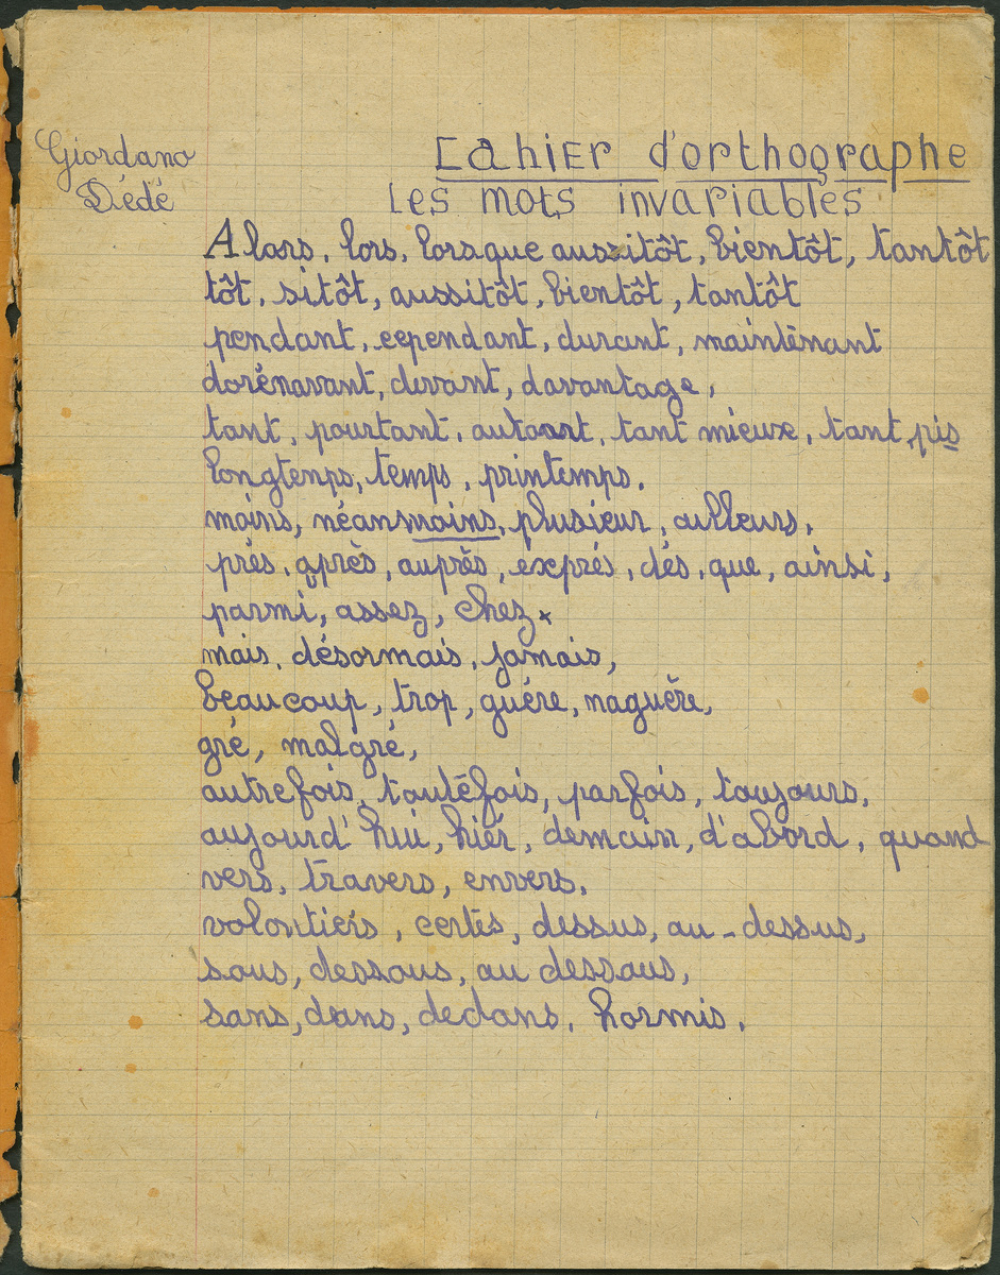 Giordano
Dédé
Cahier d'orthographe
Les mots invariables
Alors, lors, lorsque aussitôt, bientôt, tantôt
tôt, sitôt, aussitôt, bientôt, tantôt
pendant, cependant, durant, maintenant
dorénavant, devant, davantage,
tant, pourtant, autant, tant mieux, tant pis
longtemps, temps, printemps.
moins, néanmoins, plusieur, ailleurs,
près, après, auprès, exprés, dés, que, ainsi,
parmi, assez, chez
mais, désormais, jamais,
beaucoup, trop, guére, naguère,
gré, malgré,
autrefois, toutefois, parfois, toujours,
aujourd'hui, hier, demain, d'abord, quand
vers, travers, envers,
volontiers, certes, dessus, au-dessus,
sous, dessous, au dessous,
sans, dans, dedans, hormis.